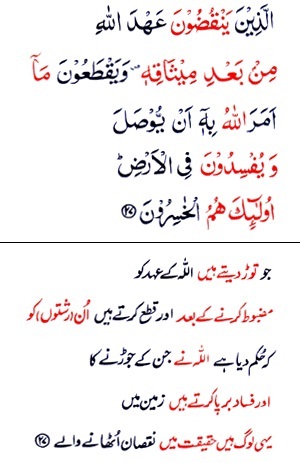 الَّذِيْنَ يَنْقُضُوْنَ عَهْدَ اللّٰهِ
مِنْۢ بَعْدِ مِيْثَاقِهٖ ۪ وَيَقْطَعُوْنَ مَاۤ
اَمَرَ اللّٰهُ بِهٖۤ اَنْ يُّوْصَلَ
وَيُفْسِدُوْنَ فِى الْاَرْضِ ؕ
اُولٰٓئِكَ هُمُ الْخٰسِرُوْنَ ﴿۲۷﴾
جو توڑ دیتے ہیں اللہ کے عہد کو
مضبوط کرنے کے بعد اور قطع کرتے ہیں اُن (رشتوں) کو
کہ حُکم دیا ہے اللہ نے جن کے جوڑنے کا
اور فساد برپا کرتے ہیں زمین میں
یہی لوگ ہیں حقیقت میں نقصان اُٹھانے والے ﴿۲۷﴾